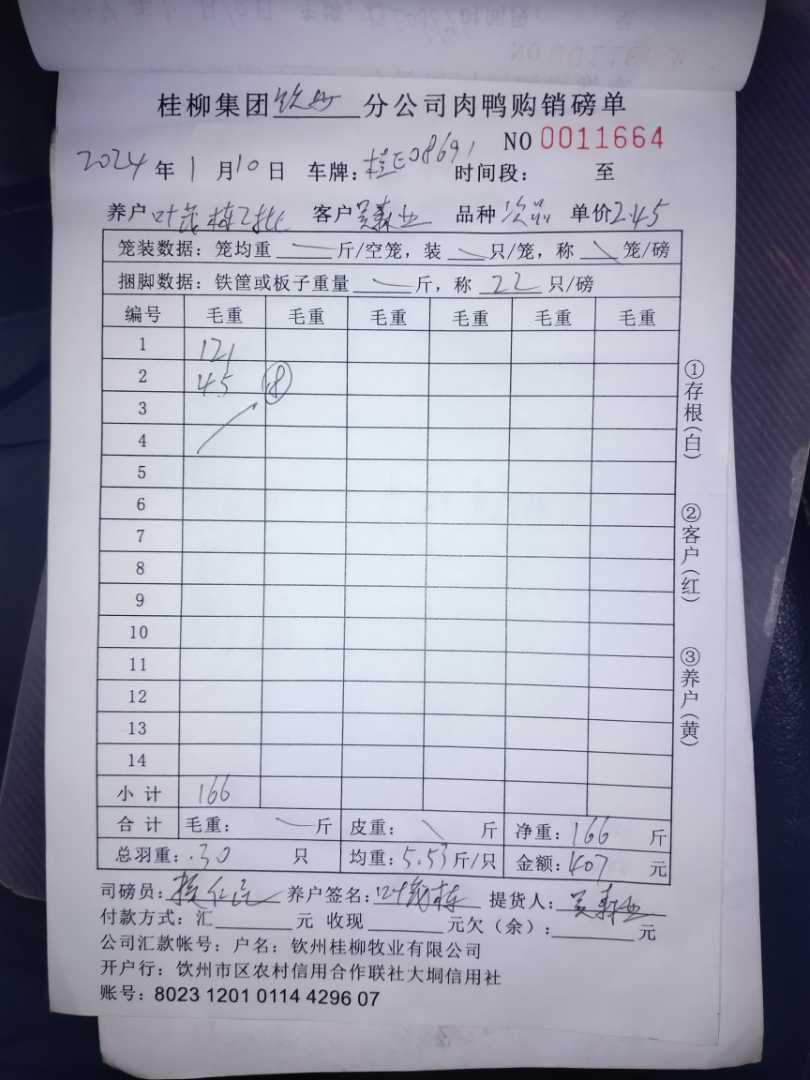 桂柳集团钦州分公司肉鸭购销磅单
NO 0011664
2024年1月10日 车牌：桂E08691 时间段： 至
养户叶茂栋2批 客户吴森业 品种次品 单价2.45
笼装数据：笼均重 斤/空笼，装 只/笼，称 笼/磅
捆脚数据：铁筐或板子重量 斤，称 22 只/磅
编号 毛重 毛重 毛重 毛重 毛重 毛重
1 121
2 45 ⑧
3
4
5
6
7
8
9
10
11
12
13
14
小计 166
合计 毛重： 斤 皮重： 斤 净重：166 斤
总羽重：30 只 均重：5.53斤/只 金额：407 元
司磅员： 养户签名：叶茂栋 提货人：吴森业
付款方式：汇 元 收现 元欠（余）： 元
公司汇款帐号：户名：钦州桂柳牧业有限公司
开户行：钦州市区农村信用合作联社大垌信用社
账号：8023 1201 0114 4296 07
①存根（白）
②客户（红）
③养户（黄）